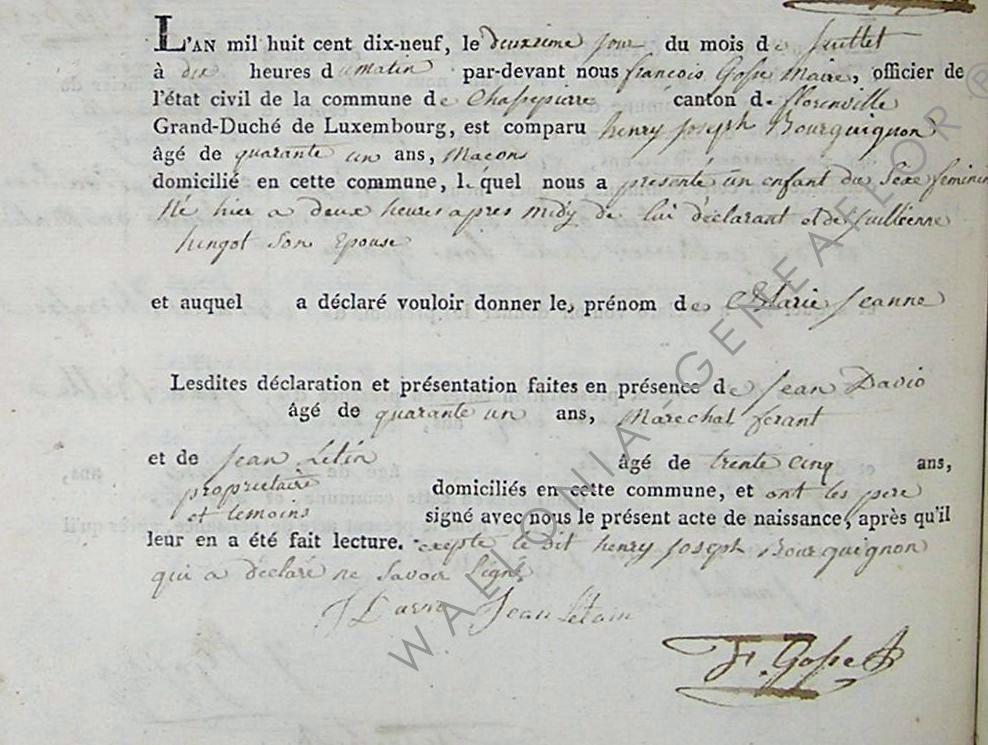 L'AN mil huit cent dix-neuf, le deuxieme jour du mois de Juillet
à dix heures du matin par-devant nous françois Gosse Maire, officier de
l'état civil de la commune de Chassepierre canton de florenville
Grand-Duché de Luxembourg, est comparu henry joseph Bourguignon
âgé de quarante un ans, Macons
domicilié en cette commune, lequel nous a présenté un enfant du Sexe feminin
Né hier a deux heures apres midy de lui déclarant et de juillienne
hingot Son Epouse
et auquel a déclaré vouloir donner les prénom de Marie Jeanne
Lesdites déclaration et présentation faites en présence de Jean David
âgé de quarante un ans, Marechal ferant
et de Jean Létin âgé de trente cinq ans,
proprietaire domiciliés en cette commune, et ont les pere
et temoins signé avec nous le présent acte de naissance, après qu'il
leur en a été fait lecture. exepté le dit henry Joseph Bourguignon
qui a déclaré ne Savoir Signé
Jean Letain
F. Gosse
WALLONIA-GENEAFLOR ®